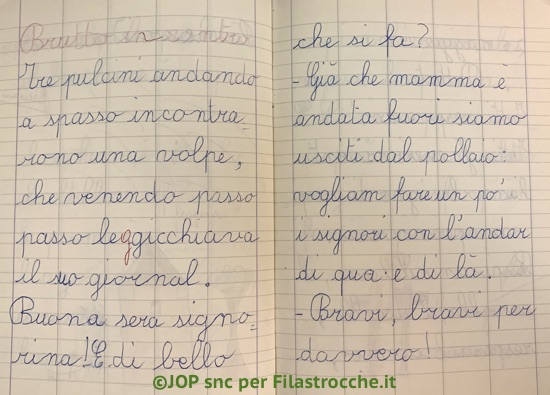 Brutto incontro
Tre pulcini andando
a spasso incontra=
rono una volpe,
che venendo passo
passo leggicchiava
il suo giornal.
Buona sera signo=
rina! E di bello
che si fa?
- Già che mamma è
andata fuori siamo
usciti dal pollaio:
vogliam fare un po'
i signori con l'andar
di qua e di là.
- Bravi, bravi per
davvero!
©JOP snc per Filastrocche.it